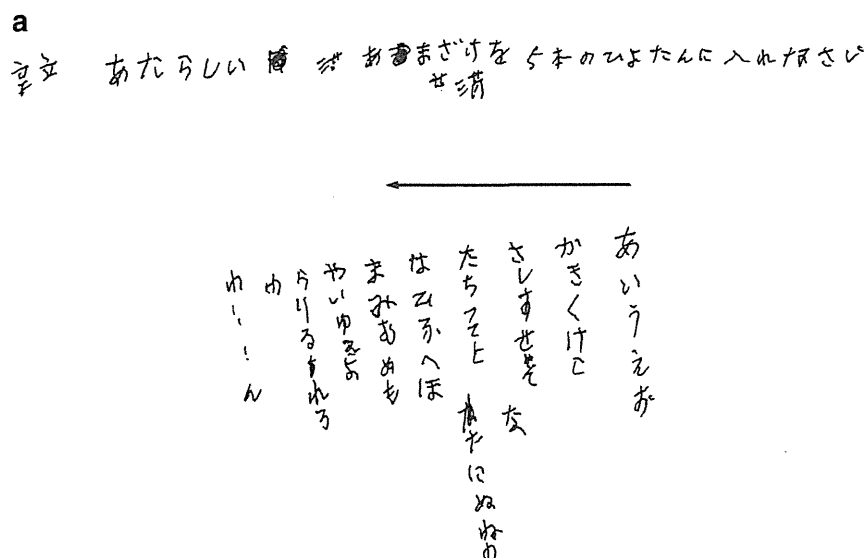 a
あたらしい あまざけを 5本のひよたんに 入れなさい
あいうえお
かきくけこ
さしすせそ な
たちつてと なたにぬねの
はひふへほ
まみむめも
やいゆえよ
らりるれろ
わ
わーーん